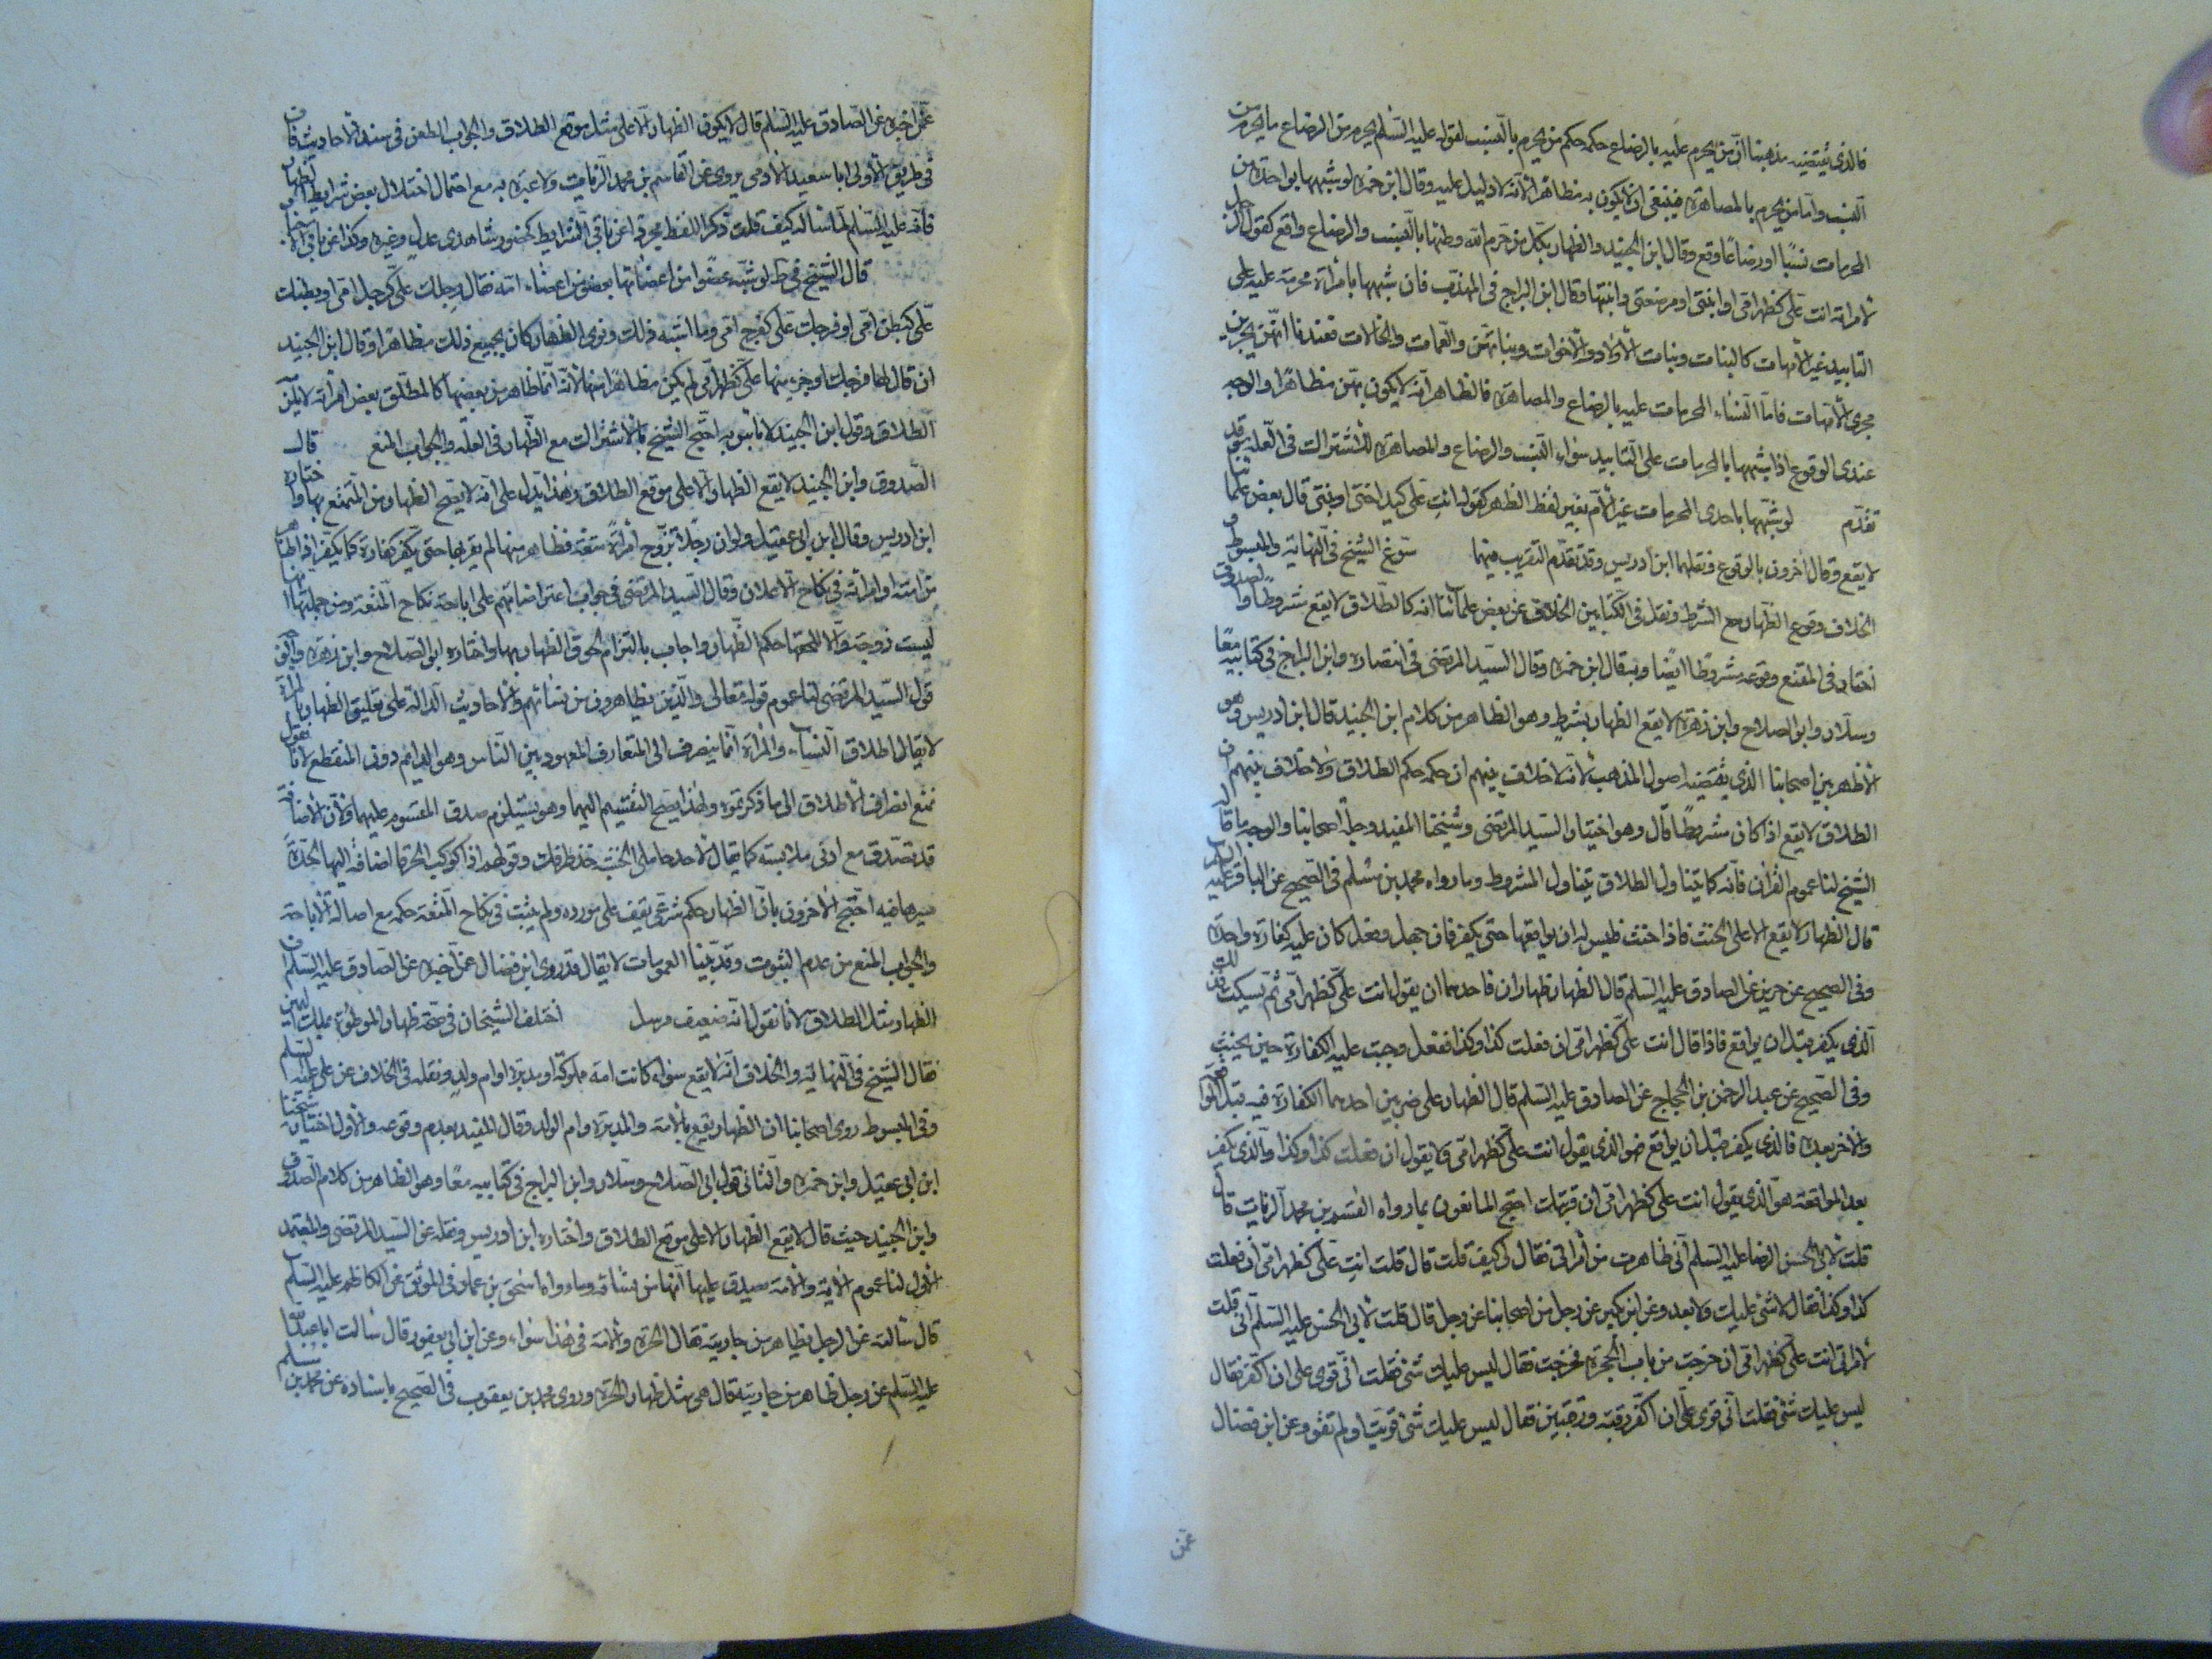 فالذي يقتضيه مذهبنا ان من يحرم عليه بالرضاع حكمه حكم من يحرم بالنسب لقوله عليه السلم يحرم من الرضاع ما يحرم من
النسب واما من يحرم بالمصاهرة فينبغي ان لا يكون به مظاهرا لانه لا دليل عليه وقال ابن حمزة لو شبهها بواحدة من
المحرمات نسبًا او رضاعًا وقع وقال ابن الجنيد والظهار بكل من حرم الله وطئها بالنسب والرضاع واقع كقول الرجل
لامراته انت علي كظهر امي او ابنتي او مرضعتي وابنتها وقال ابن البراج في المهذب فان شبهها بامرأة محرمة عليه على
التابيد غير الامهات كالبنات وبنات الاولاد والاخوات وبناتهن والعمات والخالات فعندنا انهن يجرين
مجرى الامهات فاما النساء المحرمات عليه بالرضاع والمصاهرة فالظاهر انه لا يكون بهن مظاهرا والوجه
عندي الوقوع اذا شبهها بالمحرمات على التابيد سواء النسب والرضاع والمصاهرة للاشتراك في العلة وقد
تقدم لو شبهها باحدى المحرمات غير الام بغير لفظ الظهر كقوله انت علي كيد اختي او بنتي قال بعض علمائنا
لا يقع وقال آخرون بالوقوع ونقلهما ابن ادريس وقد تقدم التقريب فيهما سوغ الشيخ في النهاية والمبسوط و
الخلاف وقوع الظهار مع الشرط ونقل في الكتابين الخلاف عن بعض علمائنا انه كالطلاق لا يقع مشروطًا والصدوق
اختار في المقنع وقوعه مشروطًا ايضًا وبه قال ابن حمزة وقال السيد المرتضى في انتصاره وابن البراج في كتابيه معًا
وسلار وابو الصلاح وابن زهرة لا يقع الظهار بشرط وهو الظاهر من كلام ابن الجنيد قال ابن ادريس وهو
الاظهر بين اصحابنا الذي يقتضيه اصول المذهب لانه لا خلاف بينهم ان حكمه حكم الطلاق ولا خلاف بينهم ان
الطلاق لا يقع اذا كان مشروطًا قال وهو اختيار السيد المرتضى وشيخنا المفيد وجلة اصحابنا والوجه ما قاله
الشيخ لنا عموم القران فانه كما يتناول الطلاق يتناول المشروط وما رواه محمد بن مسلم في الصحيح عن الباقر عليه السلم
قال الظهار لا يقع الا على الحنث فاذا حنث فليس له ان يواقعها حتى يكفر فان جهل وفعل كان عليه كفارة واحدة
وفي الصحيح عن حريز عن الصادق عليه السلم قال الظهار ظهاران فاحدهما ان يقول انت علي كظهر امي ثم يسكت فذلك
الذي يكفر قبل ان يواقع فاذا قال انت علي كظهر امي ان فعلت كذا وكذا ففعل وجبت عليه الكفارة حين يحنث
وفي الصحيح عن عبد الرحمن بن الحجاج عن الصادق عليه السلم قال الظهار على ضربين احدهما الكفارة فيه قبل المواقعة
والاخر بعده فالذي يكفر قبل ان يواقع هو الذي يقول انت علي كظهر امي ولا يقول ان فعلت كذا وكذا والذي يكفر
بعد المواقعة هو الذي يقول انت علي كظهر امي ان قربتك احتج المانعون بما رواه القسم بن محمد الزيات قال
قلت لابي الحسن الرضا عليه السلم اني ظاهرت من امراتي فقال لي كيف قلت قال قلت انت علي كظهر امي ان فعلت
كذا وكذا فقال لا شئ عليك ولا تعد وعن ابن بكير عن رجل من اصحابنا عن رجل قال قلت لابي الحسن عليه السلم اني قلت
لامراتي انت علي كظهر امي ان خرجت من باب الحجرة فخرجت فقال ليس عليك شئ فقلت اني قوي على ان اكفر فقال
ليس عليك شئ فقلت اني قوي على ان اكفر رقبة ورقبتين فقال ليس عليك شئ قويت او لم تقو وعن ابن فضال
عمن
عمن اخبره عن الصادق عليه السلم قال لا يكون الظهار الا على مثل موقع الطلاق والجواب الطعن في سند الاحاديث فان
في طريق الاولى ابا سعيد الادمي يروي عن القاسم بن محمد الزيات ولا عبرة به مع احتمال اختلال بعض شرايط الظهار
فانه عليه السلم لما سأله كيف قلت ذكر اللفظ مجردا عن باقي الشرايط كحضور شاهدي عدل وغيره وكذا عن باقي الاخبار
قال الشيخ في ط لو شبه عضوا من اعضائها بعضو من اعضاء امه فقال رجلك علي كرجل امي او بطنك
علي كبطن امي او فرجك علي كفرج امي وما اشبه ذلك ونوى الظهار كان بجميع ذلك مظاهرا وقال ابن الجنيد
ان قال لها فرجك او جزء منها علي كظهر امي لم يكن مظاهرا منها لانه انما ظاهر من بعضها كالمطلق بعض امراته لا يلزمه
الطلاق وقول ابن الجنيد لا باس به احتج الشيخ بالاشتراك مع الظهار في العلة والجواب المنع قال
الصدوق وابن الجنيد لا يقع الظهار الا على موقع الطلاق وهذا يدل على انه لا يصح الظهار من المتمتع بها واختاره
ابن ادريس وقال ابن ابي عقيل ولو ان رجلا تزوج امراة متعة فظاهر منها لم يقربها حتى يكفر كفارة كما يكفر اذا ظاهر
من امته او امراته في نكاح الاعلان وقال السيد المرتضى في جواب اعتراضاتهم على اباحة نكاح المتعة ومن جملتها انها
ليست زوجة والا للحقها حكم الظهار واجاب بالتزام لحوق الظهار بها واختاره ابو الصلاح وابن زهرة والاقوى
قول السيد المرتضى لنا عموم قوله تعالى والذين يظاهرون من نسائهم والاحاديث الدالة على تعليق الظهار بالمراة
لا يقال اطلاق النساء والمراة انما ينصرف الى المتعارف المعهود بين الناس وهو الدايم دون المنقطع لانا نقول
نمنع انصراف الاطلاق الى ما ذكرتموه ولهذا يصح التقسيم اليهما وهو يستلزم صدق المقسوم عليهما ولان الاضافة
قد تصدق مع ادنى ملابسة كما يقال لاحد حاملي الخشبة خذ طرفك وقولهم اذا كوكب الخرقا اضافه اليها لجدة
سيرها فيه احتج الاخرون بان الظهار حكم شرعي يقف على مورده ولم يثبت في نكاح المتعة حكمه مع اصالة الاباحة
والجواب المنع من عدم الثبوت وقد بينا العمومات لا يقال قد روى ابن فضال عمن اخبره عن الصادق عليه السلم ان
الظهار مثل الطلاق لانا نقول انه ضعيف مرسل اختلف الشيخان في صحة ظهار الموطوءة بملك اليمين
فقال الشيخ في النهاية والخلاف انه يقع سواء كانت امة مملوكة او مدبرة او ام ولد ونقله في الخلاف عن علي عليه السلم
وفي المبسوط روى اصحابنا ان الظهار يقع بالامة والمدبرة وام الولد وقال المفيد بعدم وقوعه والاول اختيار شيخنا
ابن ابي عقيل وابن حمزة والثاني قول ابي الصلاح وسلار وابن البراج في كتابيه معًا وهو الظاهر من كلام الصدوق
وابن الجنيد حيث قال لا يقع الظهار الا على موقع الطلاق واختاره ابن ادريس ونقله عن السيد المرتضى والمعتمد
الاول لنا عموم الاية والامة يصدق عليها انها من نسائه وما رواه اسحق بن عمار في الموثق عن الكاظم عليه السلم
قال سألته عن الرجل يظاهر من جاريته فقال الحرة والامة في هذا سواء وعن ابن ابي يعفور قال سألت ابا عبد الله
عليه السلم عن رجل ظاهر من جاريته قال هي مثل ظهار الحرة وروى محمد بن يعقوب في الصحيح باسناده عن محمد بن مسلم